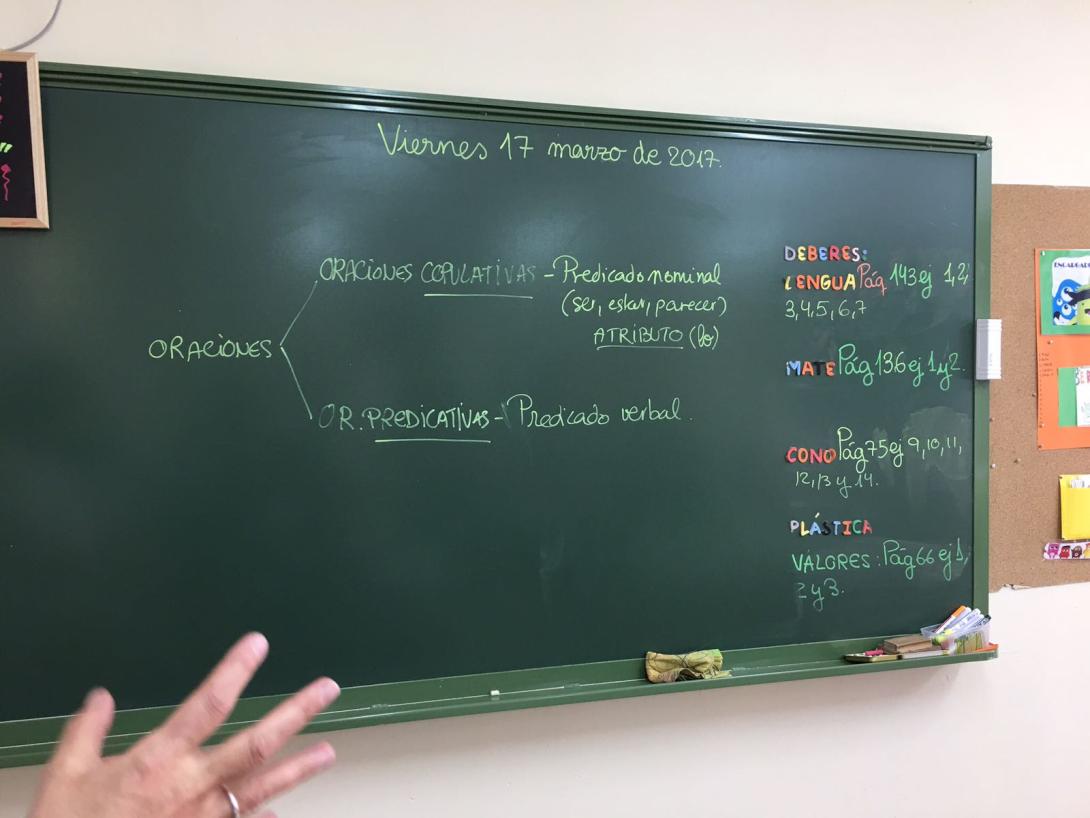 Viernes 17 marzo de 2017.
ORACIONES
ORACIONES COPULATIVAS - Predicado nominal
(ser, estar, parecer)
ATRIBUTO (lo)
OR. PREDICATIVAS - Predicado verbal.
DEBERES:
LENGUA Pág 143 ej 1, 2,
3, 4, 5, 6, 7
MATE Pág 136 ej 1 y 2.
CONO Pág 75 ej 9, 10, 11,
12, 13 y 14.
PLÁSTICA
VALORES: Pág 66 ej 1,
2 y 3.